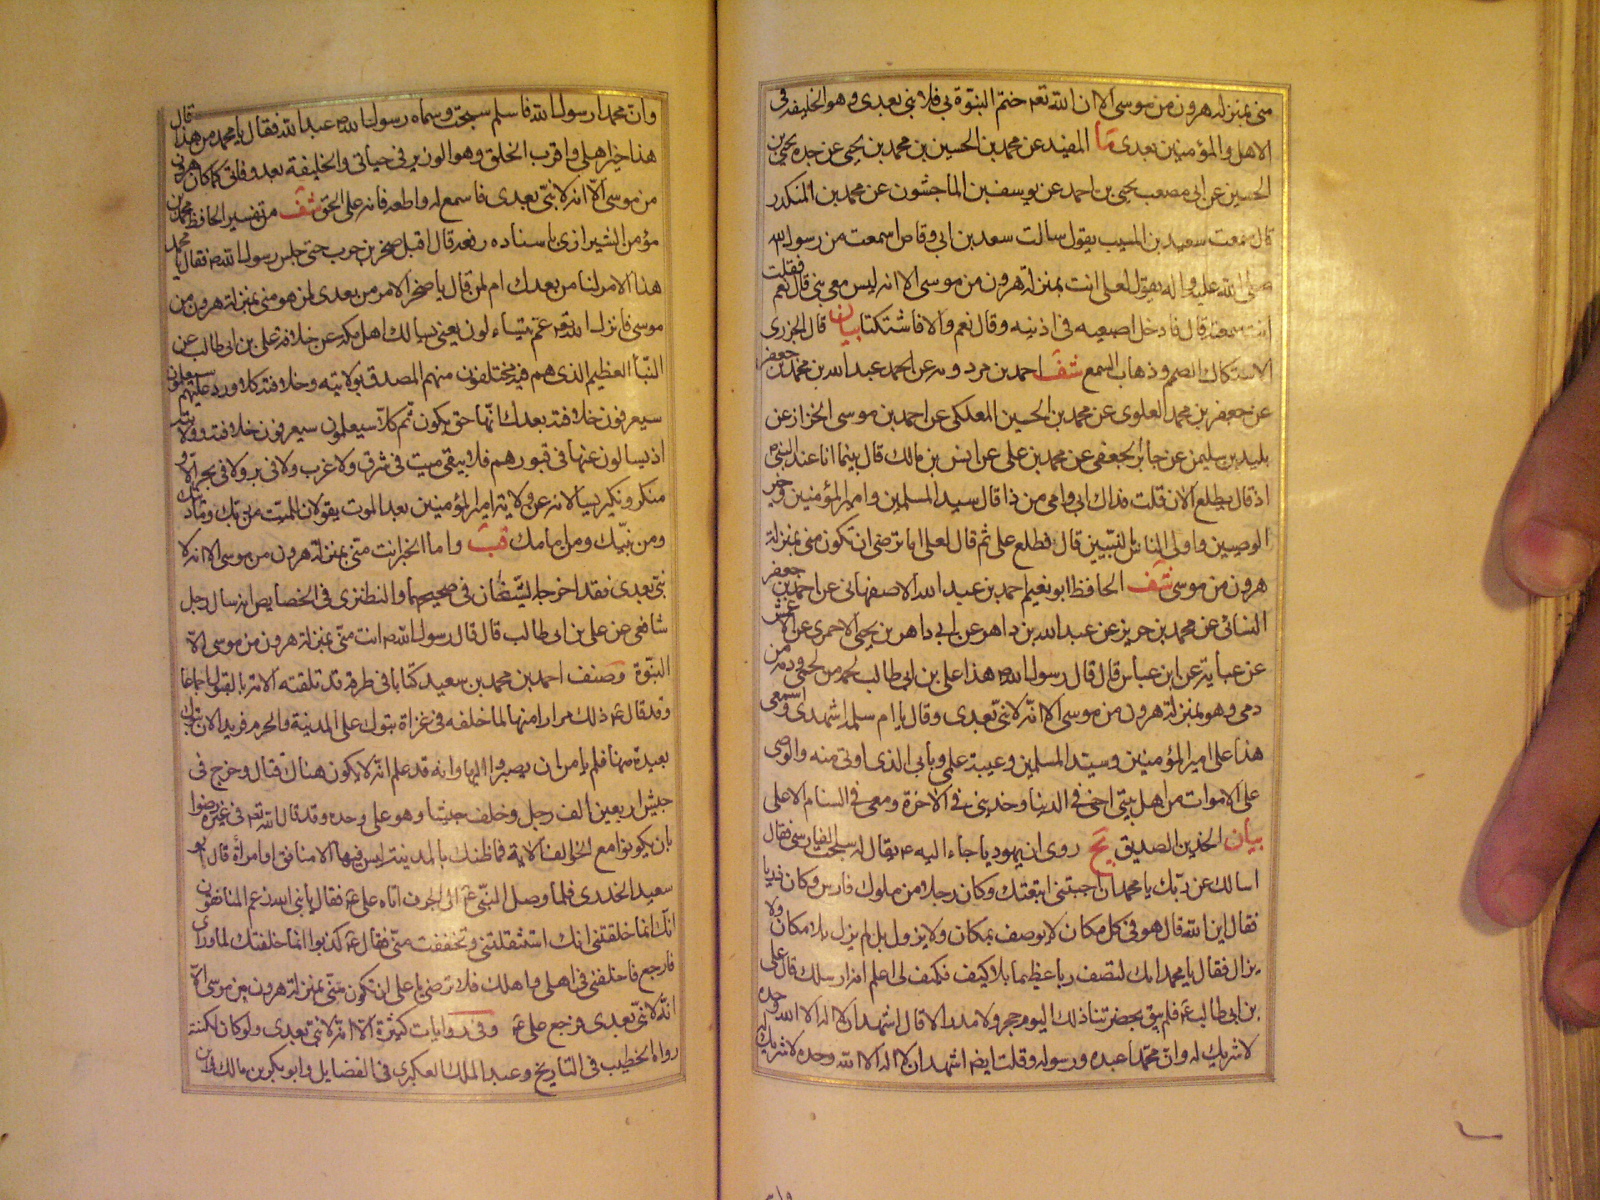 منى بمنزله هرون من موسى الا ان الله تعه ختم النبوة بى فلا نبى بعدى وهو الخليفه فى
الاهل والمؤمنين بعدى ما المفيد عن محمد بن الحسين بن محمد بن يحيى عن جده يحيى بن
الحسين عن ابى مصعب يحيى بن احمد عن يوسف بن الماجشون عن محمد بن المنكدر
قال سمعت سعيد بن المسيب يقول سالت سعد بن ابى وقاص اسمعت من رسول الله
صلى الله عليه واله يقول لعلى انت بمنزلة هرون من موسى الا انه ليس معى نبى قال نعم فقلت
انت سمعته قال فادخل اصبعيه فى اذنيه وقال نعم والا فاستكتا بيان قال الجزرى
الاستكاك الصمم وذهاب السمع شف احمد بن مردويه عن احمد عبد الله بن محمد بن جعفر
عن جعفر بن محمد العلوى عن محمد بن الحسين العلكى عن احمد بن موسى الخزاز عن
بليد بن سليمن عن جابر الجعفى عن محمد بن على عن انس بن مالك قال بينما انا عند النبى ص
اذ قال يطلع الان قلت فداك ابى وامى من ذا قال سيد المسلمين وامير المؤمنين وخير
الوصيين واولى الناس بالنبيين قال فطلع على ثم قال لعلى اما ترضى ان تكون منى بمنزلة
هرون من موسى شف الحافظ ابو نعيم احمد بن عبد الله الاصفهانى عن احمد بن جعفر
النسائى عن محمد بن حريز عن عبد الله بن داهر عن ابى داهر بن يحيى الاحمرى عن الاعمش
عن عباية عن ابن عباس قال قال رسول الله ص هذا على بن ابى طالب لحمه من لحمى ودمه من
دمى وهو بمنزلة هرون من موسى الا انه لا نبى بعدى وقال يا ام سلمه اشهدى واسمعى
هذا على امير المؤمنين وسيد المسلمين وعيبة علمى وبابى الذى اوتى منه والوصى
على الاموات من اهل بيتى اخى فى الدنيا وخدينى فى الاخرة ومعى فى السنام الاعلى
بيان الخدين الصديق يج روى ان يهوديا جاء اليه ع يقال له سبحت الفارسى فقال
اسالك عن ربك يا محمد ان اجبتنى اتبعتك وكان رجلا من ملوك فارس وكان ذربا
فقال اين الله قال هو فى كل مكان لا يوصف بمكان ولا يزول بل لم يزل بلا مكان ولا
يزال فقال يا محمد انك لتصف ربا عظيما بلا كيف فكيف لى اعلم انه ارسلك قال على
بن ابى طالب ع فلم يبق بحضرتنا ذلك اليوم حجر ولا مدر الا قال اشهد ان لا اله الا الله وحده
لا شريك له وان محمدا عبده ورسوله وقلت ايضا اشهد ان لا اله الا الله وحده لا شريك له
وان محمدا رسول الله فاسلم سبحت وسماه رسول الله ص عبد الله فقال يا محمد من هذا قال
هذا خير اهلى واقرب الخلق وهو الوزير فى حياتى والخليفة بعد وفاتى كما كان هرون
من موسى الا انه لا نبى بعدى فاسمع له واطعه فانه على الحق شف من تفسير الحافظ محمد بن
مؤمن الشيرازى باسناده رفعه قال اقبل صخر بن حرب حتى جلس رسول الله ص فقال يا محمد
هذا الامر لنا من بعدك ام لمن قال يا صخر الامر من بعدى لمن هو منى بمنزلة هرون من
موسى فانزل الله تعه عم يتساءلون يعنى يسالك اهل مكه عن خلافة على بن ابى طالب عن
النبأ العظيم الذى هم فيه مختلفون منهم المصدق بولايته وخلافته كلا ورد عليهم سيعلمون
سيعرفون خلافته بعدك انها حق يكون ثم كلا سيعلمون سيعرفون خلافته وولايته
اذ يسالون عنها فى قبورهم فلا يبقى ميت فى شرق ولا غرب ولا فى بر ولا فى بحر الا و
منكر ونكير يسالانه عن ولاية امير المؤمنين بعد الموت يقولان للميت من ربك وما دينك
ومن نبيك ومن امامك قب واما الخبر انت منى بمنزلة هرون من موسى الا انه لا
نبى بعدى فقد اخرجه الشيخان فى صحيحيهما والنطنزى فى الخصايص انه سال رجل
شافعى عن على بن ابى طالب قال قال رسول الله ص انت منى بمنزلة هرون من موسى الا
النبوة وصنف احمد بن محمد بن سعيد كتابا فى طرقه قد تلقته الامة بالقبول اجماعا
وقد قال ع ذلك مرارا منها لما خلفه فى غزاة تبوك على المدينة والحرم فريدا لان تبوك
بعيدة منها فلم يامن ان يصيروا اليها وانه قد علم انه لا يكون هناك قتال وخرج فى
جيش اربعين الف رجل وخلف جيشا وهو على وحده وقد قال الله تعه فى غيره رضوا
بان يكونوا مع الخوالف الاية فما ظنك بالمدينة ليس فيها الا منافق او امرأة قال ابو
سعيد الخدرى فلما وصل النبى ع الى الجرف اتاه على ع فقال يا نبى الله زعم المنافقون
انك انما خلفتنى انك استثقلتنى وتخففت منى فقال ع كذبوا انما خلفتك لما ورائى
فارجع فاخلفنى فى اهلى واهلك فلا ترضى يا على ان تكون منى بمنزلة هرون من موسى الا
انه لا نبى بعدى فرجع على ع وفى روايات كثيرة الا انه لا نبى بعدى ولو كان لكنته
رواه الخطيب فى التاريخ وعبد الملك العكبرى فى الفضايل وابو بكر بن مالك وابن